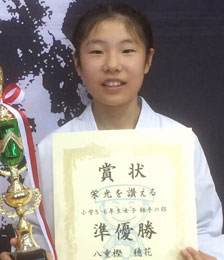 賞状
栄光を讃える
小学5・6年生女子 組手の部
準優勝
八重樫 穂花